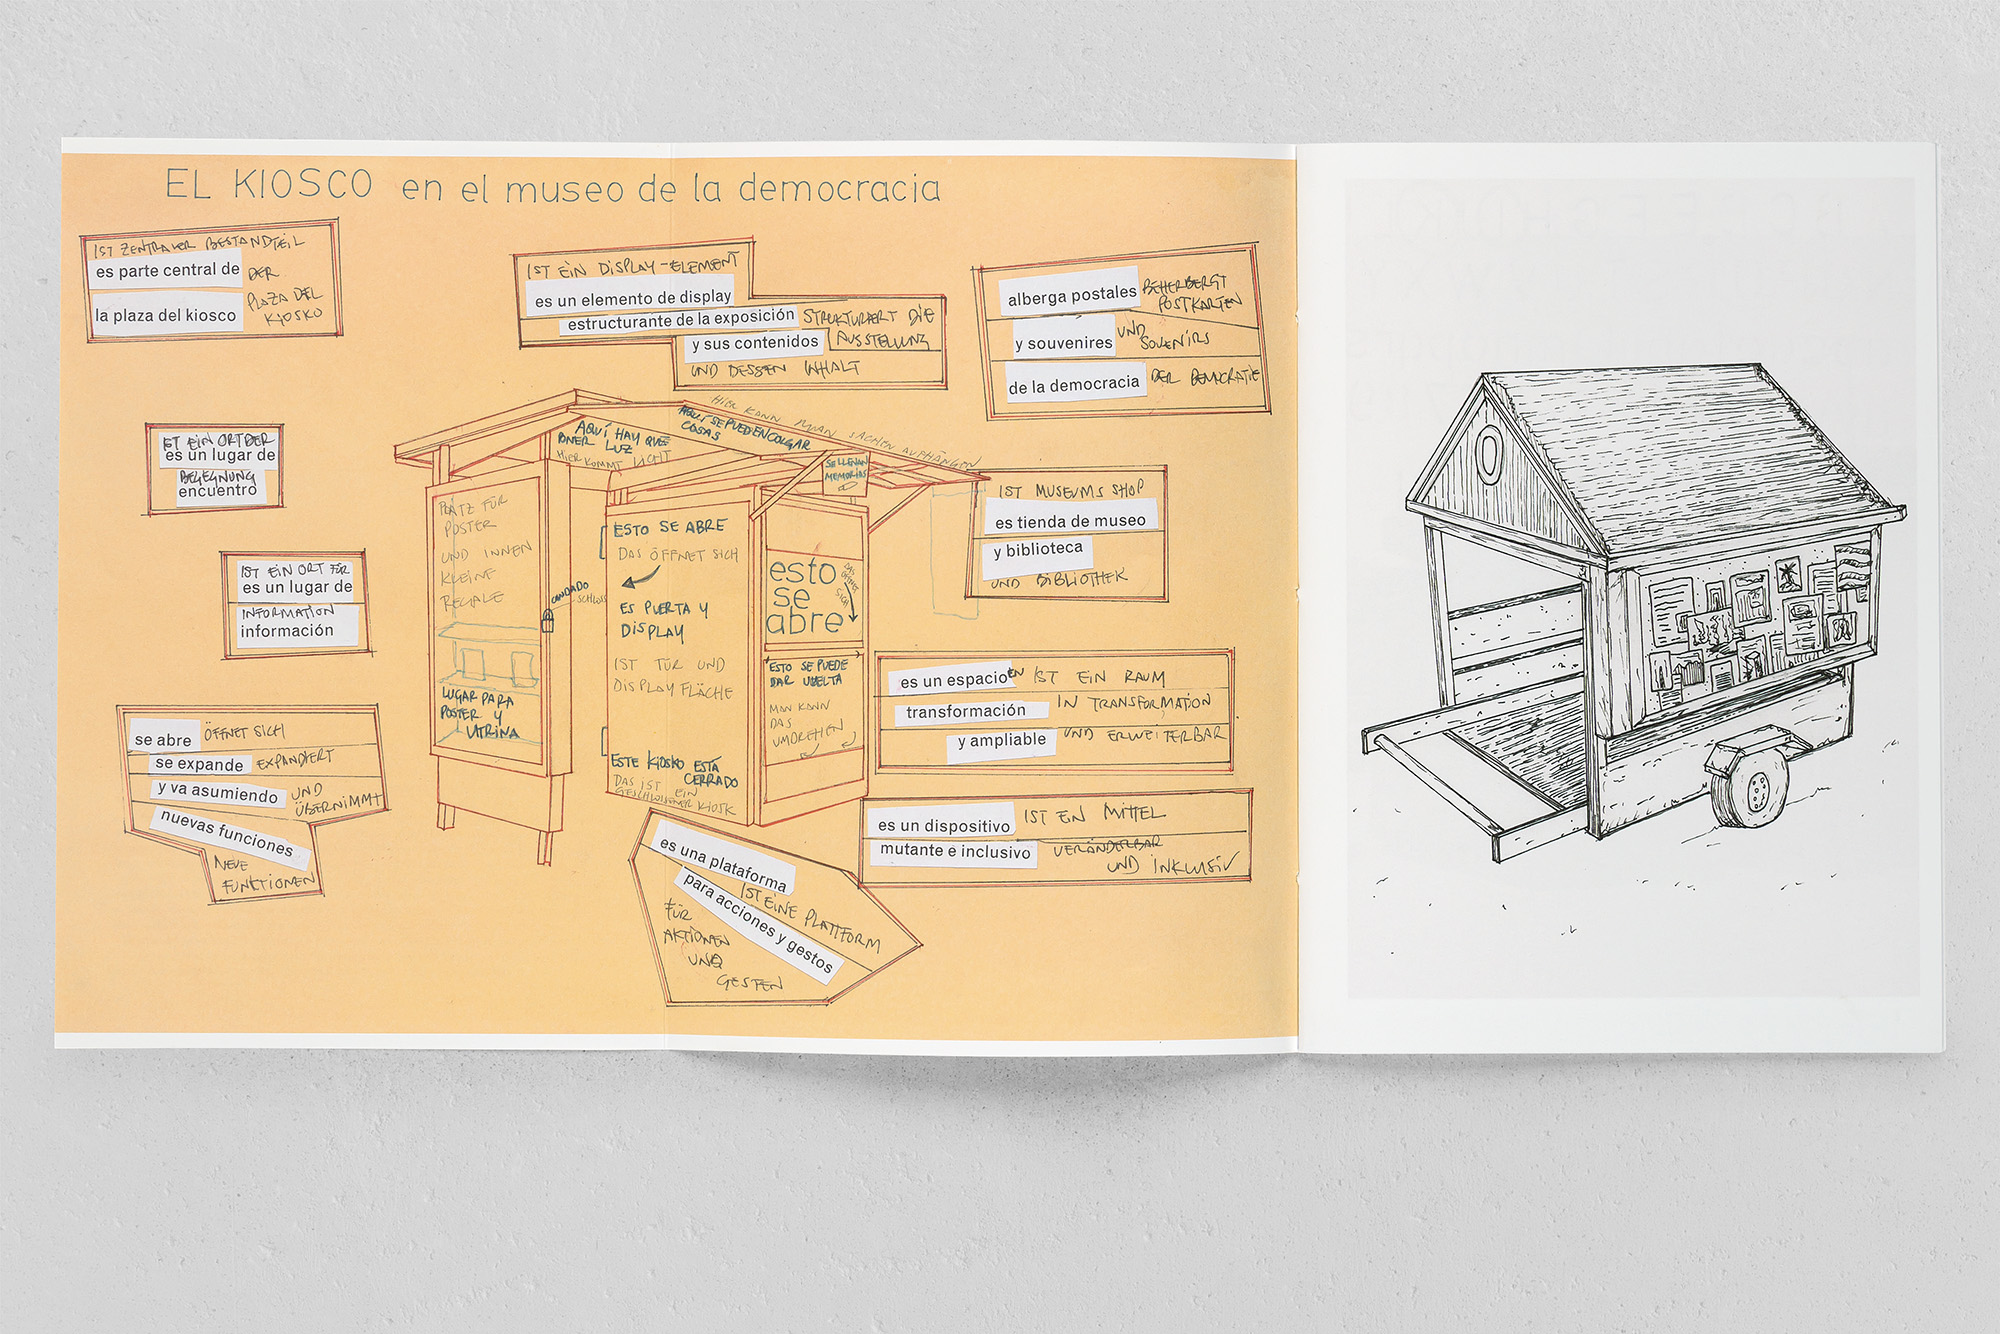 EL KIOSCO en el museo de la democracia
IST ZENTRALER BESTANDTEIL
es parte central de DER
la plaza del kiosco PLAZA DEL
KIOSKO
IST EIN DISPLAY-ELEMENT
es un elemento de display
estructurante de la exposición STRUKTURIERT DIE
y sus contenidos AUSSTELLUNG
UND DESSEN INHALT
alberga postales BEHERBERGT
POSTKARTEN
y souvenires UND
SOUVENIRS
de la democracia DER DEMOCRATIE
IST EIN ORT DER
es un lugar de
BEGEGNUNG
encuentro
IST EIN ORT FÜR
es un lugar de
INFORMATION
información
se abre ÖFFNET SICH
se expande EXPANDIERT
y va asumiendo UND
ÜBERNIMMT
nuevas funciones
NEUE
FUNKTIONEN
AQUÍ HAY QUE
PONER LUZ
HIER KOMMT LICHT
HIER KANN MAN SACHEN AUFHÄNGEN
AQUÍ SE PUEDEN COLGAR
COSAS
SE LLENAN
MEMORIAS
PLATZ FÜR
POSTER
UND INNEN
KLEINE
REGALE
LUGAR PARA
POSTER Y
VITRINA
CANDADO
SCHLOSS
ESTO SE ABRE
DAS ÖFFNET SICH
ES PUERTA Y
DISPLAY
IST TÜR UND
DISPLAY FLÄCHE
ESTE KIOSKO ESTÁ
CERRADO
DAS IST EIN
GESCHLOSSENER KIOSK
esto
se
abre
DAS
ÖFFNET
SICH
ESTO SE PUEDE
DAR VUELTA
MAN KANN
DAS
UMDREHEN
IST MUSEUMS SHOP
es tienda de museo
y biblioteca
UND BIBLIOTHEK
es un espacio en IST EIN RAUM
transformación IN TRANSFORMATION
y ampliable UND ERWEITERBAR
es un dispositivo IST EN MITTEL
mutante e inclusivo VERÄNDERBAR
UND INKLUSIV
es una plataforma
IST EINE PLATTFORM
para acciones y gestos
FÜR
AKTIONEN
UND
GESTEN